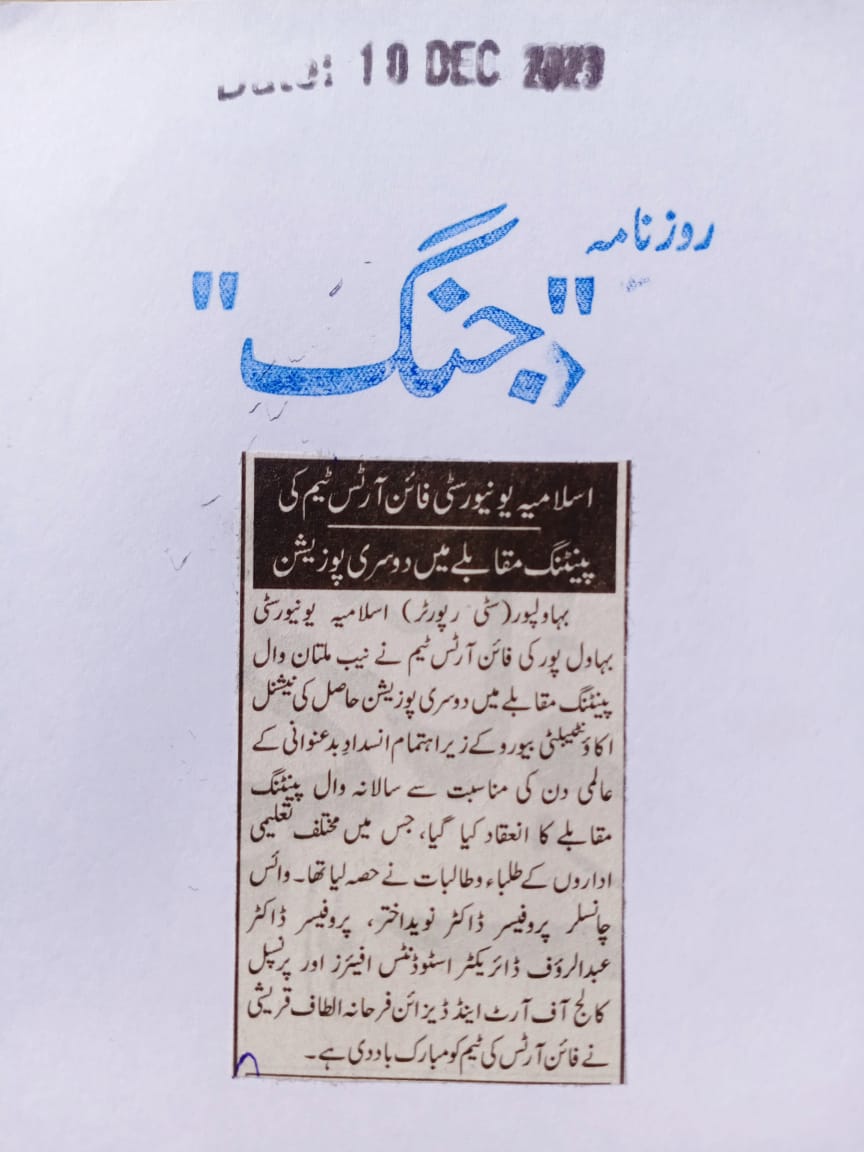 Date: 10 DEC 2023
روزنامہ
"جنگ"
اسلامیہ یونیورسٹی فائن آرٹس ٹیم کی
پینٹنگ مقابلے میں دوسری پوزیشن
بہاولپور (سٹی رپورٹر) اسلامیہ یونیورسٹی
بہاول پور کی فائن آرٹس ٹیم نے نیب ملتان وال
پینٹنگ مقابلے میں دوسری پوزیشن حاصل کی نیشنل
اکاؤنٹیبلٹی بیورو کے زیر اہتمام انسدادِ بدعنوانی کے
عالمی دن کی مناسبت سے سالانہ وال پینٹنگ
مقابلے کا انعقاد کیا گیا، جس میں مختلف تعلیمی
اداروں کے طلباء و طالبات نے حصہ لیا تھا۔ وائس
چانسلر پروفیسر ڈاکٹر نوید اختر، پروفیسر ڈاکٹر
عبدالرؤف ڈائریکٹر اسٹوڈنٹس افیئرز اور پرنسپل
کالج آف آرٹ اینڈ ڈیزائن فرحانہ الطاف قریشی
نے فائن آرٹس کی ٹیم کو مبارک باد دی ہے۔